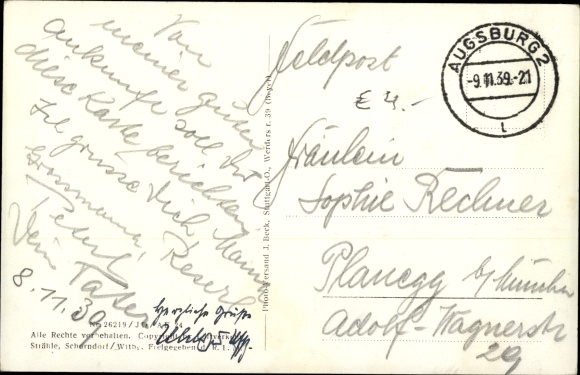 Von
meiner guten
Ankunft soll dir
diese Karte berichten
Ich grüsse Dich, Mama
Grossmama, Reserl
Dein Vater
8.11.39
Herzliche Grüße
No 26219/
Alle Rechte vorbehalten.
Strähle, Schorndorf/Wttb., Freigegeben d. R.L.
Photo-Versand J. Beck, Stuttgart-O., Werders r. 39
Feldpost
AUGSBURG 2
-9.11.39.-21
L
€ 4.-
Fräulein
Sophie Rechner
Planegg b/München
Adolf-Wagnerstr
29